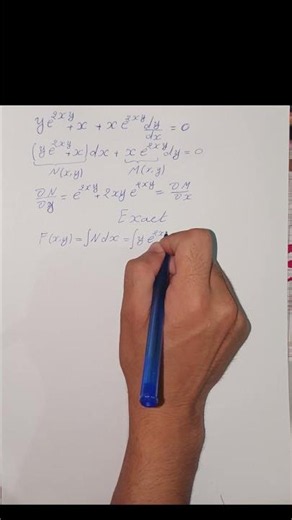 ye^{2xy} + x + xe^{2xy} dy/dx = 0
(ye^{2xy} + x)dx + xe^{2xy} dy = 0
N(x,y) M(x,y)
∂N/∂y = e^{2xy} + 2xy e^{2xy} = ∂M/∂x
Exact
F(x,y) = ∫Ndx = ∫ye^{2x